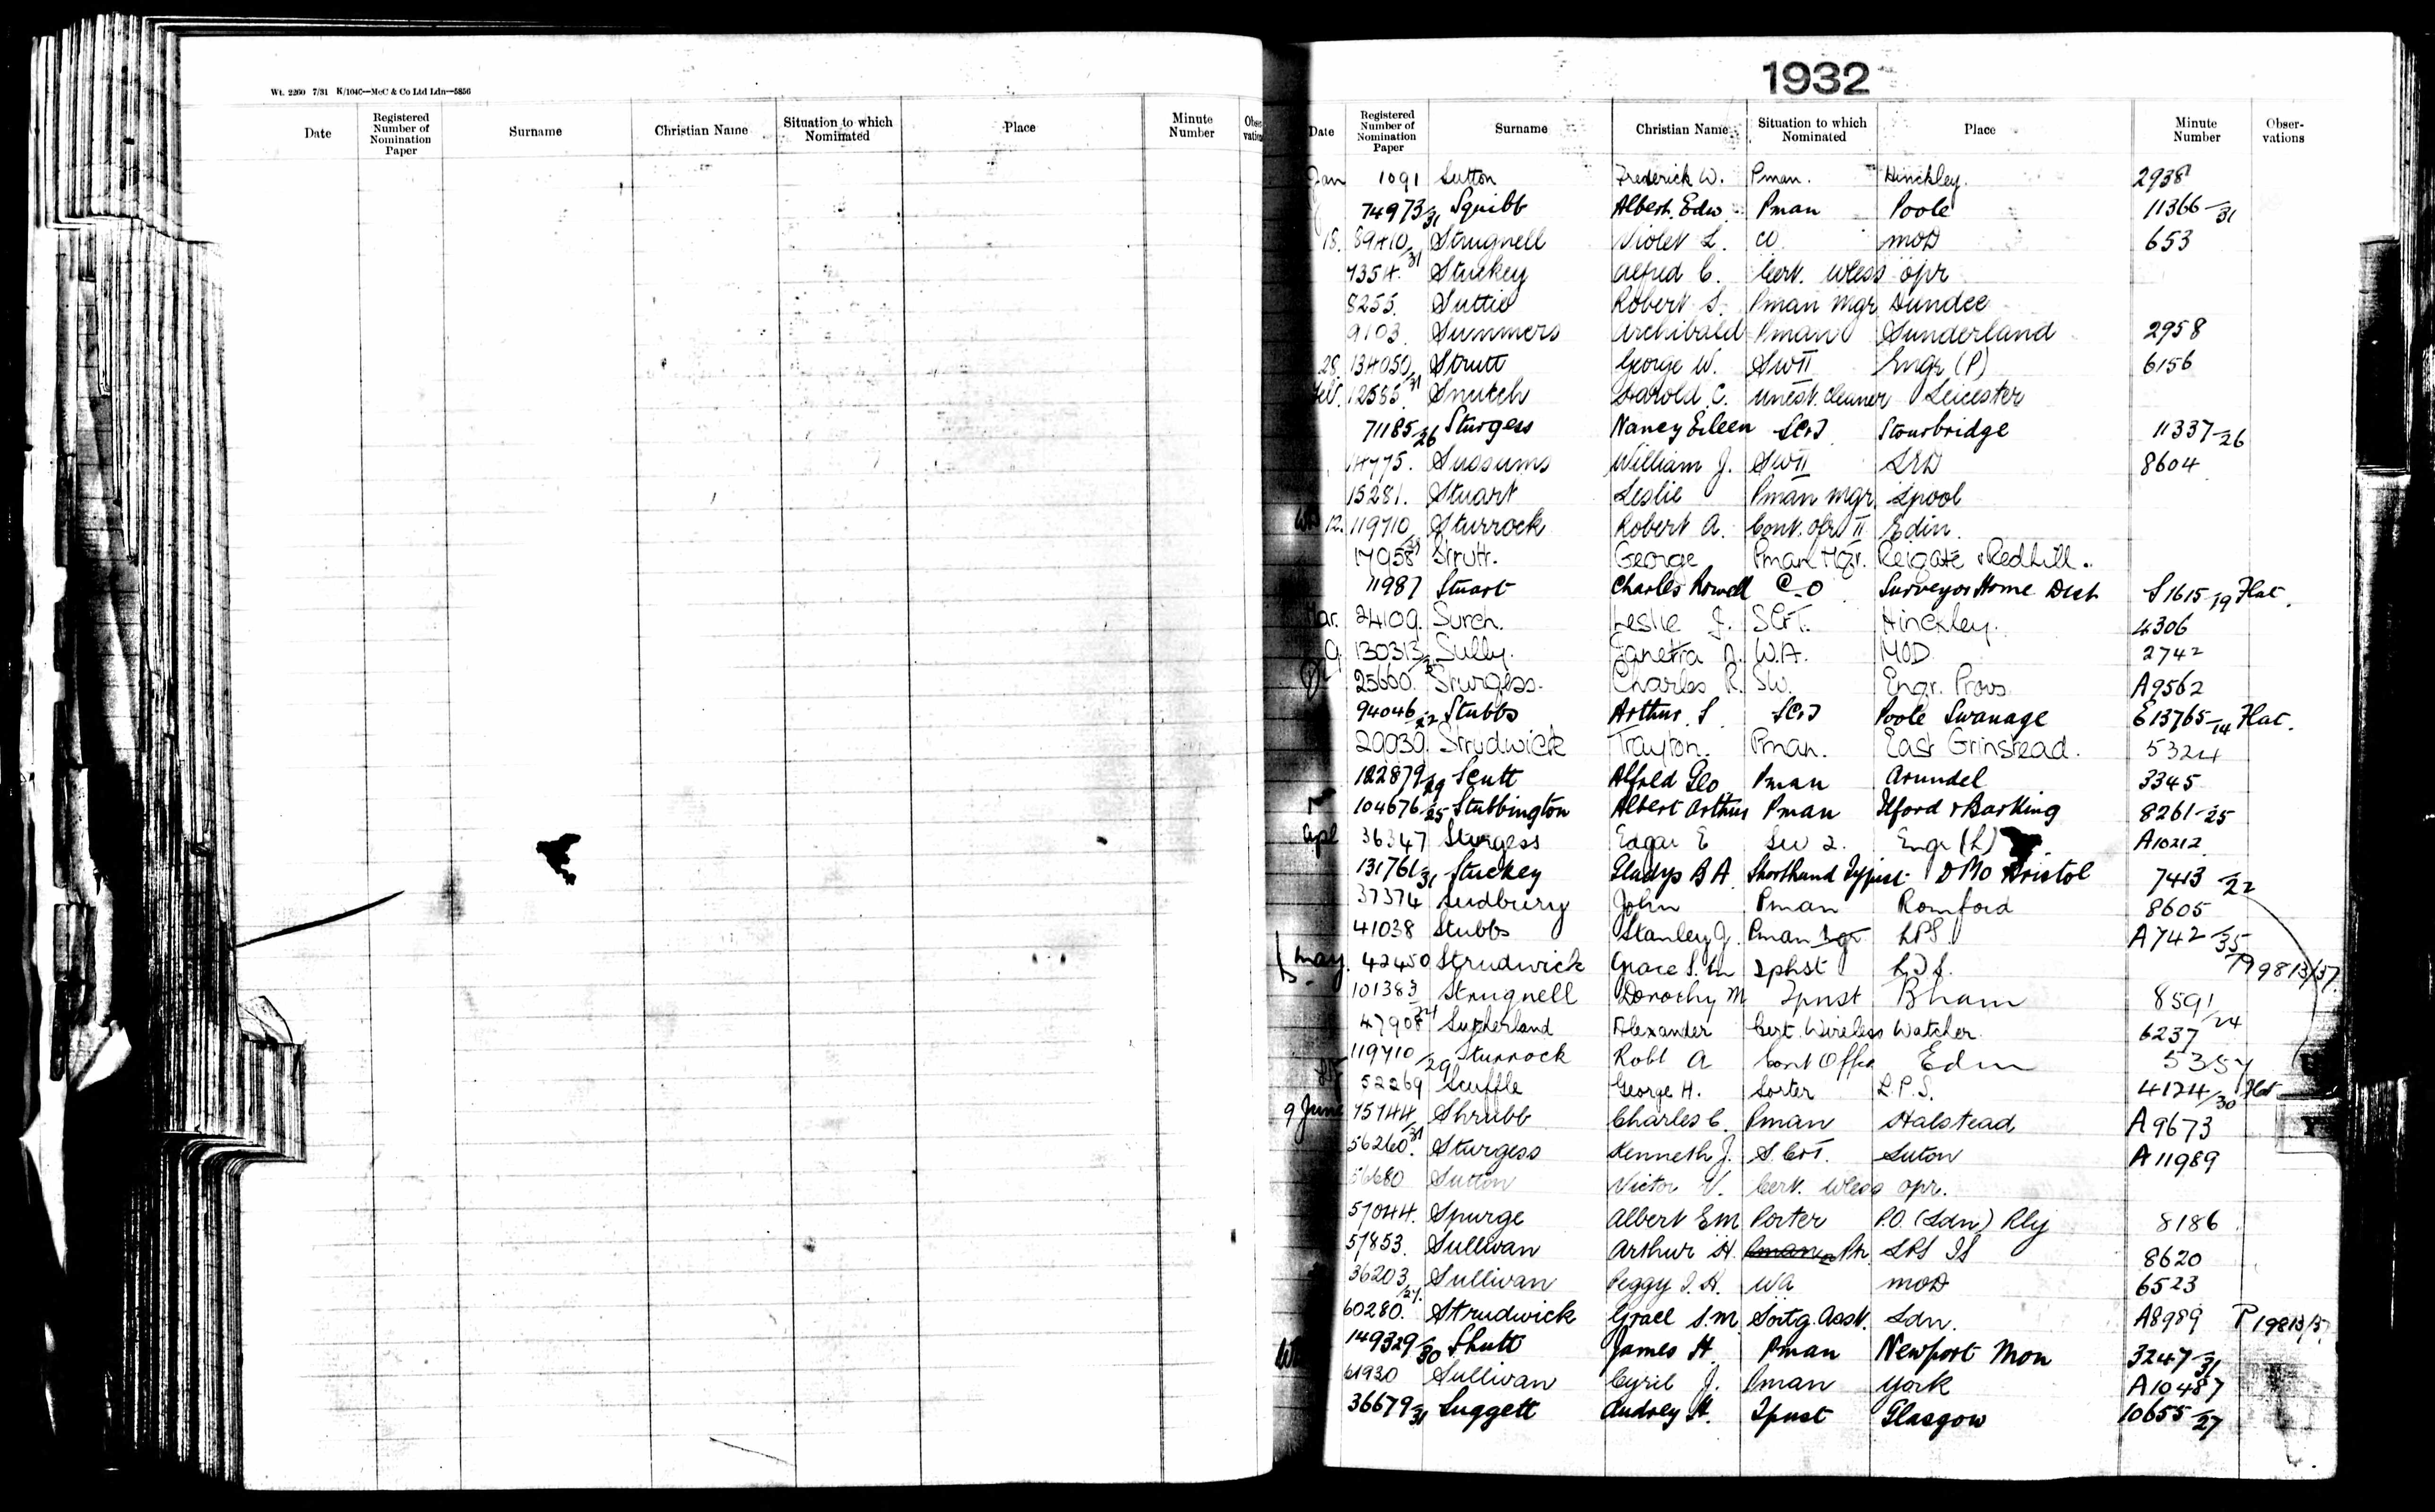 Wt. 2260 7/31 K/1040—McC & Co Ltd Ldn—5856
Date Registered Number of Nomination Paper Surname Christian Name Situation to which Nominated Place Minute Number
1932
Date Registered Number of Nomination Paper Surname Christian Name Situation to which Nominated Place Minute Number Obser-vations
Jan 1091 Sutton Frederick W. Pman. Hinckley. 2938
74973/31 Squibb Albert Edw Pman Poole 11366/31
18. 89410/31 Strugnell Violet L. CO. MOD 653
7354. Stuckey Alfred C. Cert. Wless Opr
8255. Suttie Robert S. Pman Mgr Dundee
9103. Summers Archibald Pman Sunderland 2958
28. 134050/31 Strutt George W. SWII Engr (P) 6156
Feb. 12585. Snutch Harold C. Unest. Cleaner Leicester
71185/26 Sturgess Nancy Eileen SC&T Stourbridge 11337/26
14775. Sussums William J. SWII LRD 8604
15281. Stuart Leslie Pman Mgr Lpool
12. 119710 Sturrock Robert A. Cont. Ofr II Edin.
17958 Strutt. George Pman Mgr. Reigate & Redhill.
11987 Stuart Charles C.O. Surveyor Home Dist S1615/19 Flat.
Mar. 24109. Surch. Leslie J. SC&T. Hinckley. 4306
9 130313 Sully. Janetta A. W.A. MOD 2742
25660. Sturgess. Charles R. SW. Engr. Provs A9562
94046/22 Stubbs Arthur S SC&T Poole Swanage E13765/14 Flat.
29039. Strudwick Trayton. Pman. East Grinstead. 5324
122879/29 Scutt Alfred Geo Pman Arundel 3345
104676/25 Stubbington Albert Arthur Pman Ilford & Barking 8261-25
Apl 36347 Sturgess Edgar E SW 2. Engr (L) A10212
131761/31 Stuckey Gladys B A Shorthand Typist DMO Bristol 7413/22
37374 Sudbury John Pman Romford 8605
41038 Stubbs Stanley J. Pman Mgr LPS. A742/35
May. 42450 Strudwick Grace S. M Tphst L.T.S. P19813/37
101383/21 Strugnell Dorothy M Tpnst Bham 8591/24
47908 Sutherland Alexander Cert. Wireless Watcher. 6237
119710/29 Sturrock Robt A Cont Offr Edin 5357
52269 Scuffle George H. Sorter L.P.S. 4124/30 Flat
9 June 15744/31 Shrubb Charles C. Pman Halstead A9673
56260. Sturgess Kenneth J. S.C&T. Luton A11989
56680 Sutton Victor V. Cert. Wless Opr.
57044. Spurge Albert E M Porter P.O. (Ldn) Rly 8186
57853. Sullivan Arthur H. Pman Ptr LPS IS 8620
36203/27. Sullivan Peggy I. H. WA MOD 6523
60280. Strudwick Grace S. M. Sortg. Asst. Ldn. A8989 P19813/37
149329/30 Shutt James H. Pman Newport Mon 3247/31
61930 Sullivan Cyril J. Pman York A10487
36679/31 Suggett Audrey H. Tpnst Glasgow 10655/27